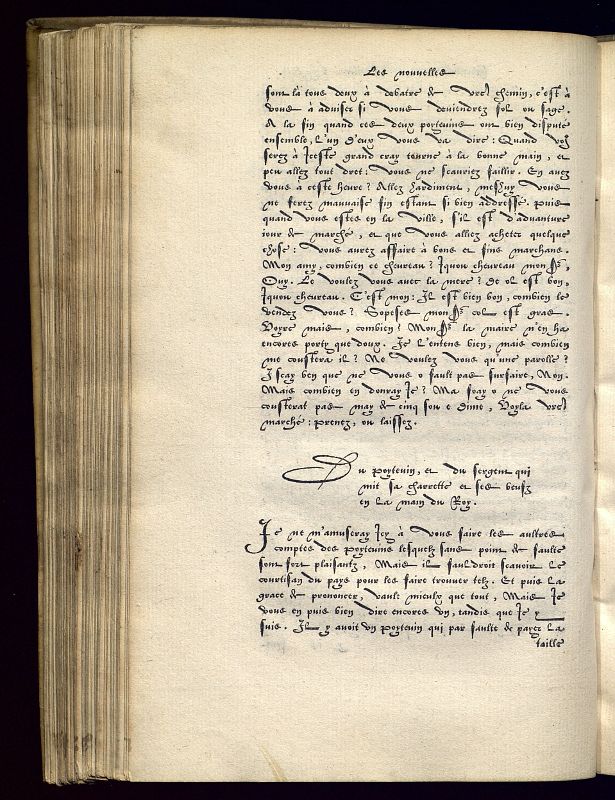 Les nouvelles
sont là tous deux à debatre de vrẽ chemin, c'est à
vous à adviser si vous deviendrez fol ou sage.
A la fin quand ces deux poytevins ont bien disputé
ensemble, l'un d'eux vous va dire: Quand võ
serez à Iceste grand cray tourne à la bonne main, et
peu allez tout dret: vous ne scauriez faillir. En avez
vous à ceste heure? Allez hardiment, meshuy vous
ne ferez mauvaise fin estant si bien addressé. puis
quand vous estes en la ville, s'il est d'advanture
iour de marche, et que vous alliez acheter quelque
chose: vous aurez affaire à bons et fins marchans.
Mon amy, combien ce chevreau? Iquou chevreau monsʳ,
Ouy. Le voulez vous avec la mere? De ol est bon,
Iquou chevreau. C'est mon: Il est bien bon, combien le
vendez vous? Sopesés monsʳ col est gras.
Voyre mais, combien? Monsʳ la maire n'en ha
encores porty que doux. Ie l'entens bien, mais combien
me coustera il? Ne voulez vous qu'une parolle?
I scay ben que ne vous o fault pas surfaire, Mon.
Mais combien en donray Ie? Ma foay o ne vous
cousterat pas may de cinq sou e dimé, Voyla vrẽ
marché: prenez, ou laissez.
Du poytevin, et du sergent qui
mit sa charrette et ses beufz
en la main du Roy.
Ie ne m'amuseray Icy à vous faire les aultres
comptes des poytevins lesquelz sans point de faulte
sont fort plaisantz, Mais il fauldroit scavoir le
courtisan du pays pour les faire trouver telz. Et puis la
grace de prononcer, vault mieulx que tout, Mais Ie
vous en puis bien dire encores un, tandis que Ie y
suis. Il y avoit un poytevin qui par faulte de payer la
taille